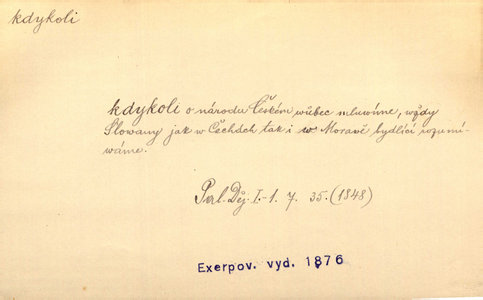 kdykoli
kdykoli o národu Českém wůbec mluwíme, wždy
Slowany jak w Čechách tak i w Moravě bydlící rozumí-
wáme.
Pal. Děj. I.-1. 7. 35. (1848)
Exerpov. vyd. 1876